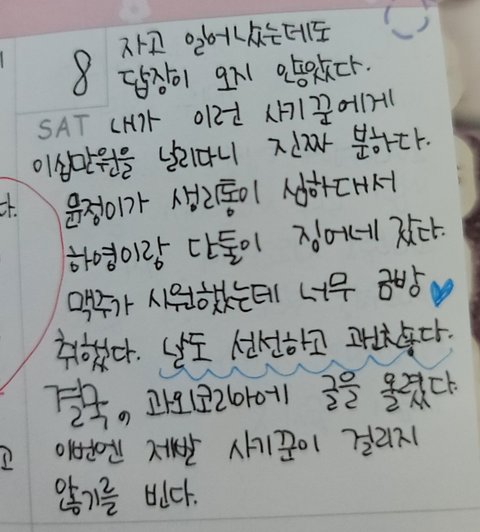 8
자고 일어났는데도
답장이 오지 않았다.
SAT 내가 이런 사기꾼에게
이십만원을 날리다니 진짜 분하다.
윤정이가 생리통이 심하대서
하영이랑 단둘이 징어네 갔다.
맥주가 시원했는데 너무 금방
취했다. 날도 선선하고 괜찮았다.
결국, 과외코리아에 글을 올렸다.
이번엔 제발 사기꾼이 걸리지
않기를 빈다.
다.
고